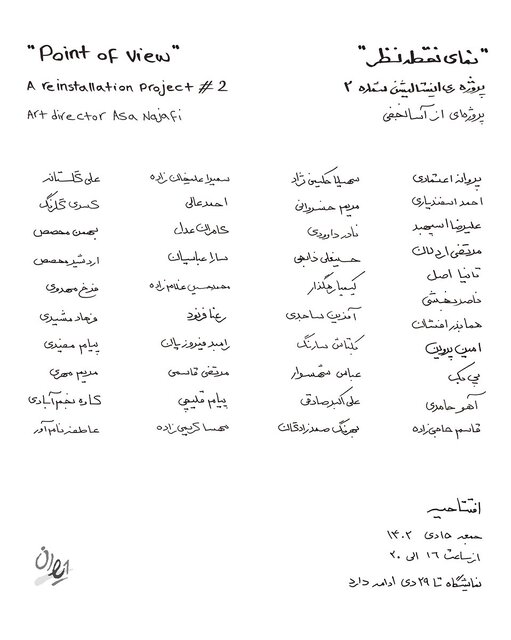 "Point of View"
A reinstallation project # 2
Art director Asa Najafi
"نمای نقطه نظر"
پروژه‌ی اینستالیشن شماره ۲
پروژه‌ای از آسا نجفی
پروانه اعتمادی
احمد اسفندیاری
علیرضا اسپهبد
مرتضی اردلان
تانیا اصل
ناصر بخشی
هما بذرافشان
امین پروین
پی بک
آهو حامدی
قاسم حاجی‌زاده
سهیلا حکیمی نژاد
مریم خضروانی
نادر داوودی
حسینعلی ذابحی
کیمیا رهگذار
آفرین ساجدی
کیتاش سارنگ
عباس شهسوار
علی اکبر صادقی
بهرنگ صمدزادگان
سمیرا علیخان زاده
احمد عالی
کامران عدل
سارا عباسیان
محمدحسین غلامزاده
رعنا فرنود
رامبد فیروزیان
مرتضی قاسمی
پیام قلیچی
مهسا کریمی زاده
علی گلستانه
کسری گلرنگ
بهمن محصص
اردشیر محصص
فرخ مهدوی
فرهاد مشیری
پیام مفیدی
مریم مهری
کاوه نجم آبادی
عاطفه نام آور
افتتاحیه
جمعه ۱۵ دی ۱۴۰۲
از ساعت ۱۶ الی ۲۰
نمایشگاه تا ۲۹ دی ادامه دارد